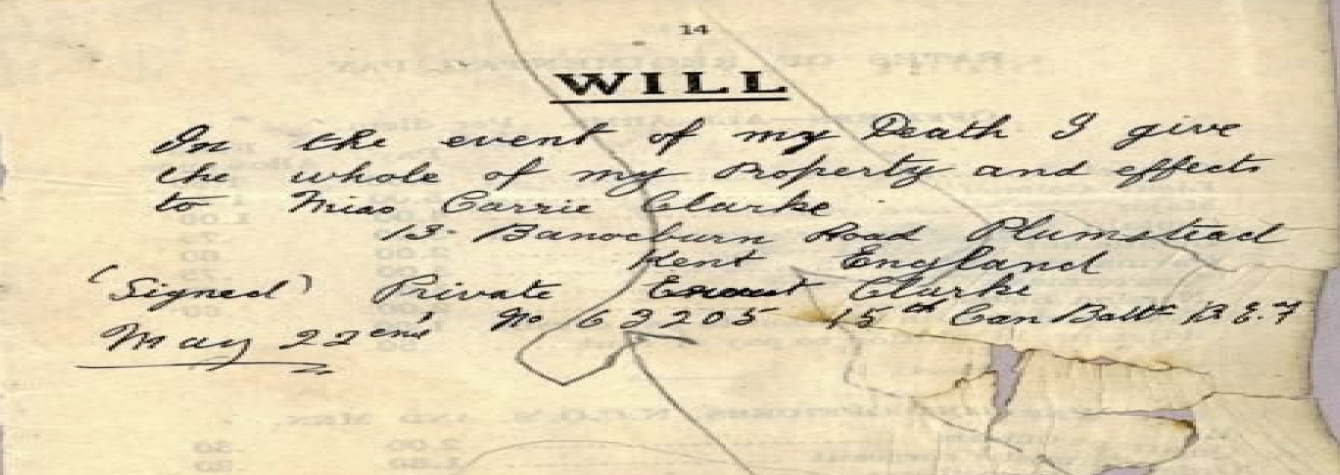 14
WILL
In the event of my Death I give
the whole of my Property and effects
to Miss Carrie Clarke
13 Banocburn Road Plumstead
Kent England
(Signed) Private Ernest Clarke
May 22end No 63205 15th Can Batt B.E.F